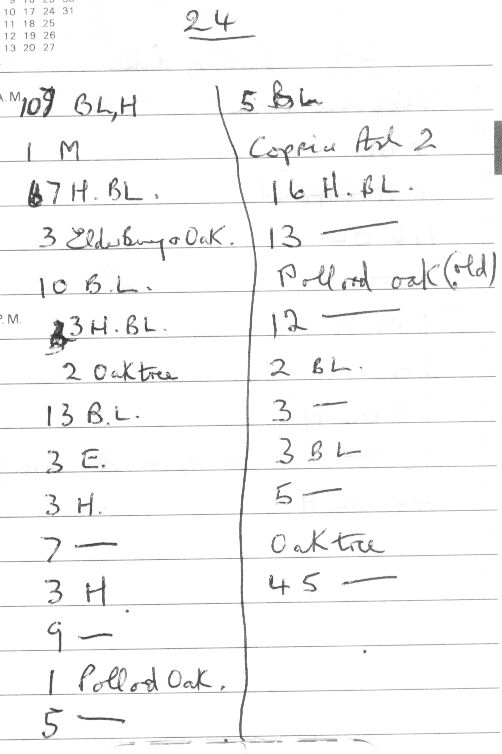 10 17 24 31
11 18 25
12 19 26
13 20 27
24
A.M.
109 BL,H
1 M
67 H. BL.
3 Elderberry & Oak.
10 B.L.
P.M.
3 H. BL.
2 Oaktree
13 B.L.
3 E.
3 H.
7 —
3 H
9 —
1 Pollard Oak.
5 —
5 BL
Coppice Ash 2
16 H. BL.
13 —
Pollard oak (old)
12 —
2 BL.
3 —
3 BL
5 —
Oak tree
45 —